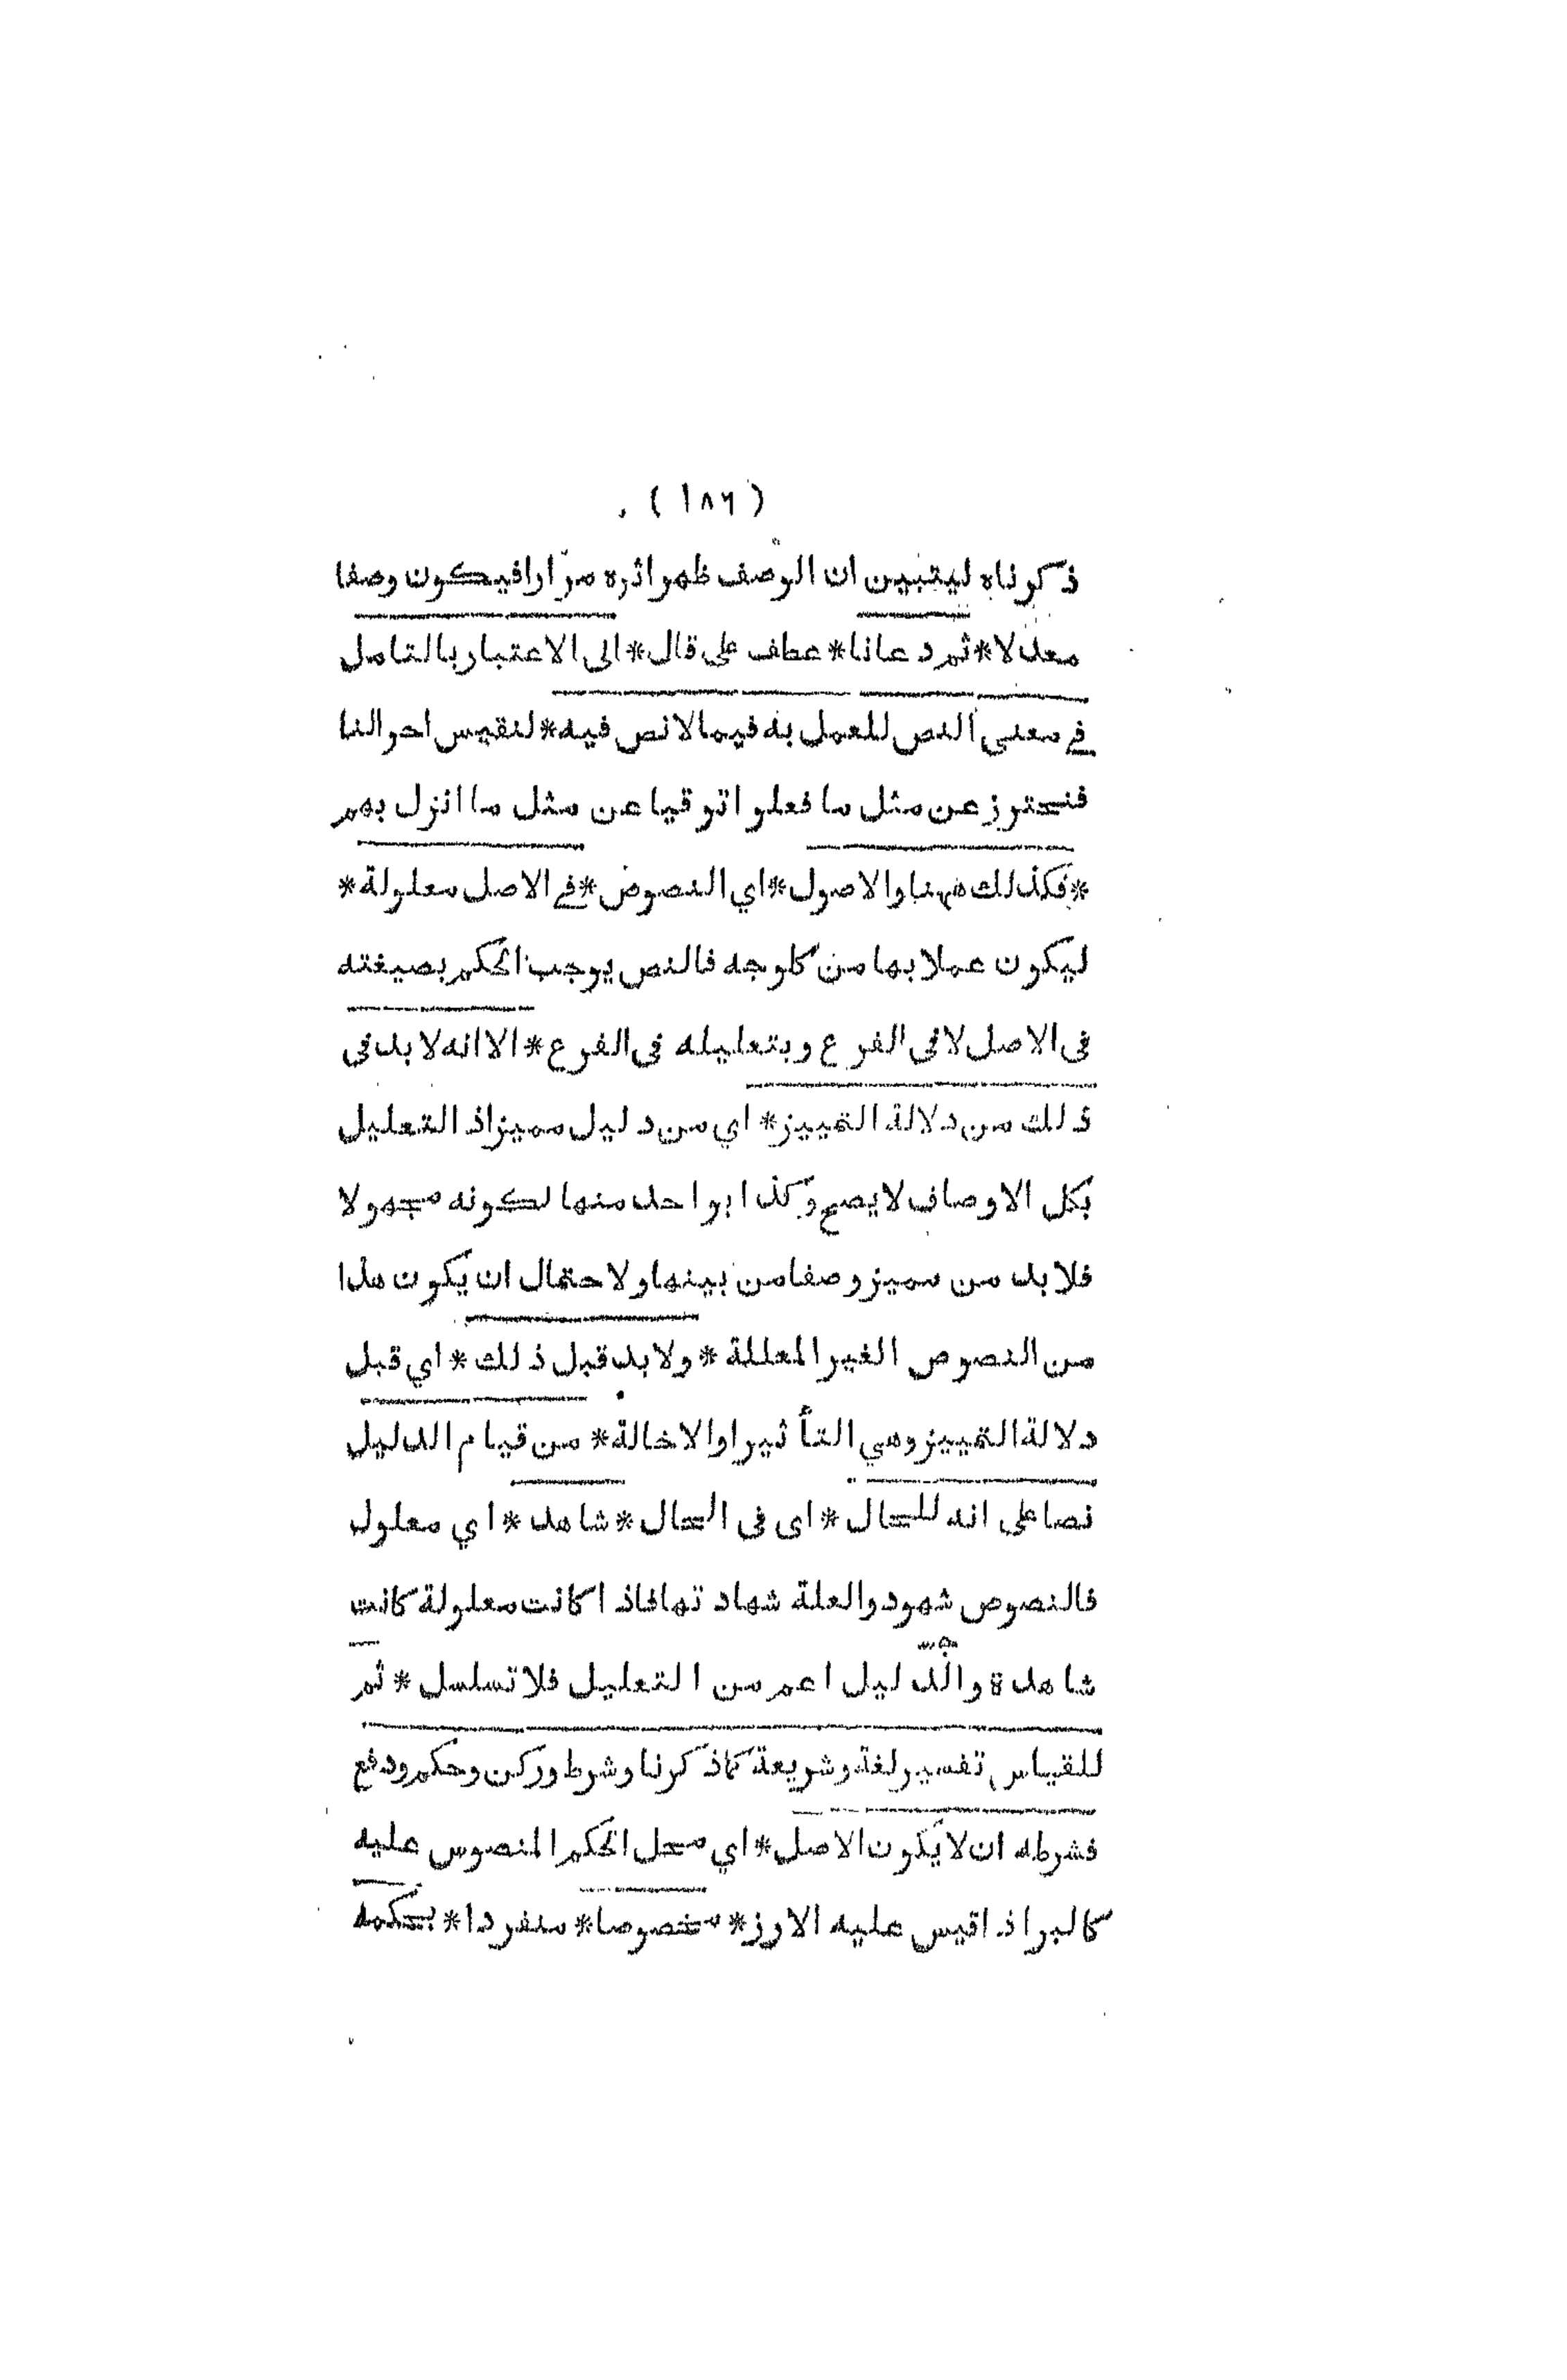 ( ١٨٦ )
ذكرناه ليتبين ان الوصف ظهر اثره مرّارا فيكون وصفا
معدلا * ثم دعانا * عطف على قال * الى الاعتبار بالتامل
في معنى النص للعمل به فيما لا نص فيه * لنقيس احوالنا
فنحترز عن مثل ما فعلوا توقيا عن مثل ما انزل بهم
* فكذلك ههنا والاصول * اي النصوص * في الاصل معلولة *
ليكون عملا بها من كل وجه فالنص يوجب الحكم بصيغته
فى الاصل لا فى الفرع وبتعليله فى الفرع * الا انه لا بد فى
ذلك من دلالة التمييز * اي من دليل مميز اذ التعليل
بكل الاوصاف لا يصح وكذا بواحد منها لكونه مجهولا
فلا بد من مميز وصفا من بينها ولاحتمال ان يكون هذا
من النصوص الغير المعللة * ولا بد قبل ذلك * اي قبل
دلالة التمييز وهي التأثير او الاخالة * من قيام الدليل
نصا على انه للحال * اى فى الحال * شاهد * اي معلول
فالنصوص شهود والعلة شهادتها فاذا كانت معلولة كانت
شاهدة والدّليل اعم من التعليل فلا تسلسل * ثم
للقياس تفسير لغة وشريعة كما ذكرنا وشرط وركن وحكم ودفع
فشرطه ان لا يكون الاصل * اي محل الحكم المنصوص عليه
كالبر اذا قيس عليه الارز * مخصوصا * منفردا * بحكمه